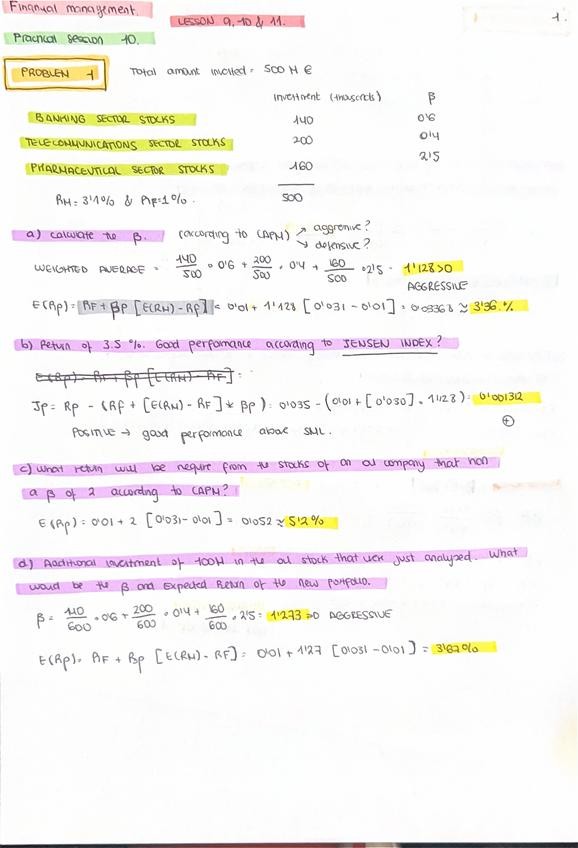 Financial management.
LESSON 9, 10 & 11.
1.
Practical session 10.
PROBLEM 1 Total amount invested = 500 M €
investment (thousands) β
BANKING SECTOR STOCKS 140 0'6
TELECOMMUNICATIONS SECTOR STOCKS 200 0'4
PHARMACEUTICAL SECTOR STOCKS 160 2'5
RM = 3'1% & RF = 1%. 500
a) calculate the β. (according to CAPM) → aggressive?
→ defensive?
WEIGHTED AVERAGE = 140/500 · 0'6 + 200/500 · 0'4 + 160/500 · 2'5 = 1'128 > 0
AGGRESSIVE
E(Rp) = RF + βp [E(RM) - RF] = 0'01 + 1'128 [0'031 - 0'01] = 0'03368 ≈ 3'36.%
b) Return of 3.5 %. Good performance according to JENSEN INDEX?
E(Rp) = RF + βp [E(RM) - RF] =
Jp = Rp - (Rf + [E(RM) - RF] * βp) = 0'035 - (0'01 + [0'030] · 1'128) = 0'001312
+
POSITIVE → good performance above SML.
c) What return will be require from the stocks of an oil company that has
a β of 2 according to CAPM?
E(Rp) = 0'01 + 2 [0'031 - 0'01] = 0'052 ≈ 5'2%
d) Additional investment of 100M in the oil stock that were just analyzed. What
would be the β and Expected Return of the new portfolio.
β = 140/600 · 0'6 + 200/600 · 0'4 + 160/600 · 2'5 = 1'273 => AGGRESSIVE
E(Rp) = RF + βp [E(RM) - RF] = 0'01 + 1'27 [0'031 - 0'01] = 3'67%